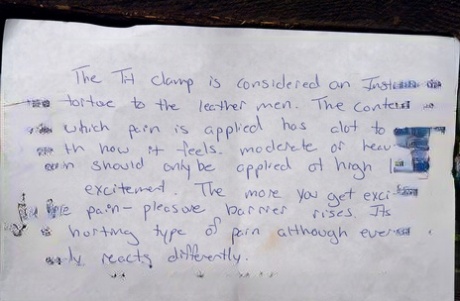 The TH clamp is considered an
tortue to the leather men. The
which pain is applied has alot to
how it feels. moderate or
should only be applied at high
excitement. The more you get
pain-pleasure barrier rises. Its
type of pain although
reacts differently.